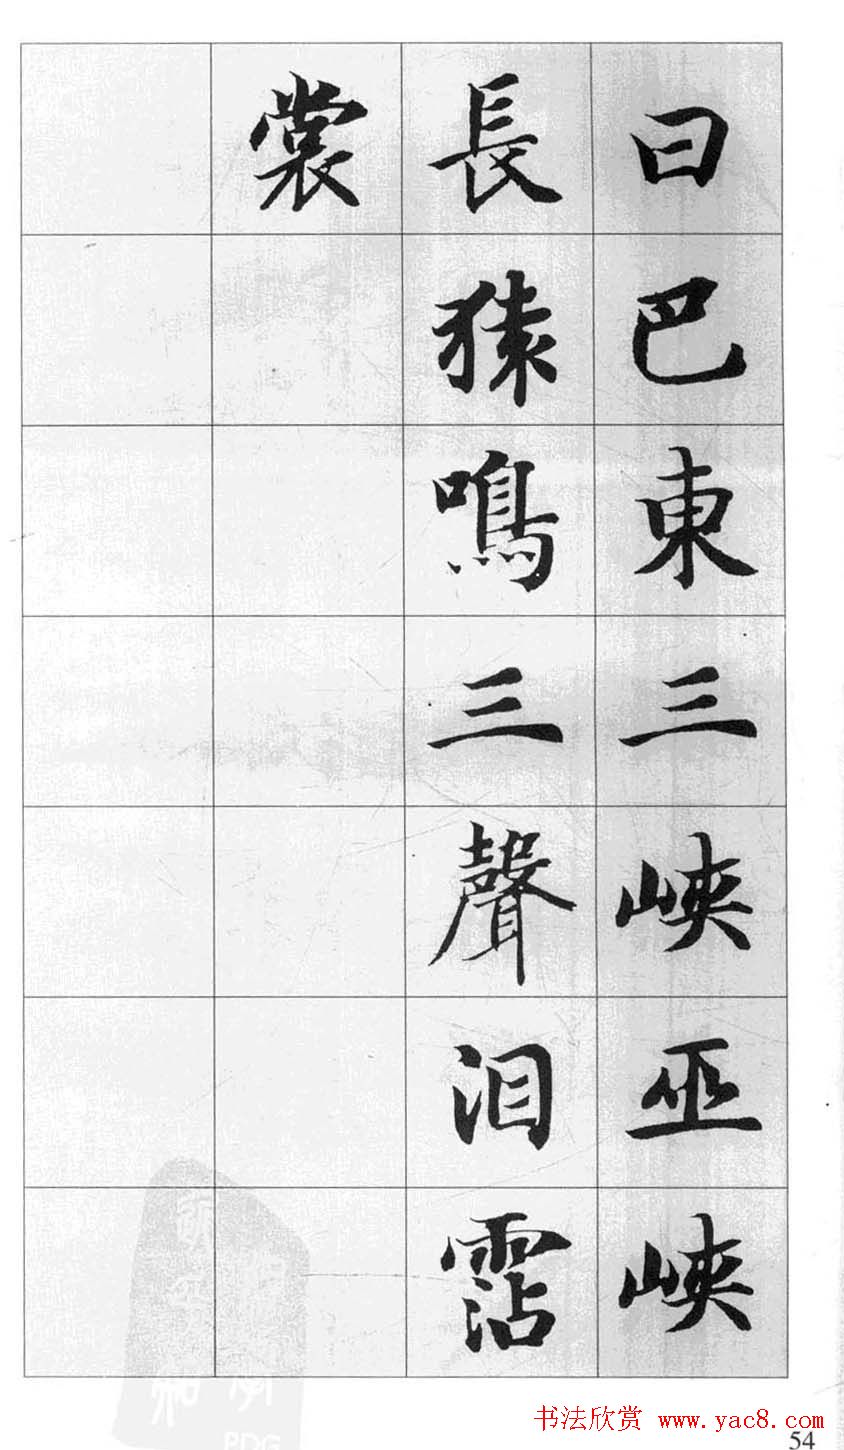 曰巴東三峽巫峽
長猿鳴三聲泪霑
裳
书法欣赏 www.yac8.com
54